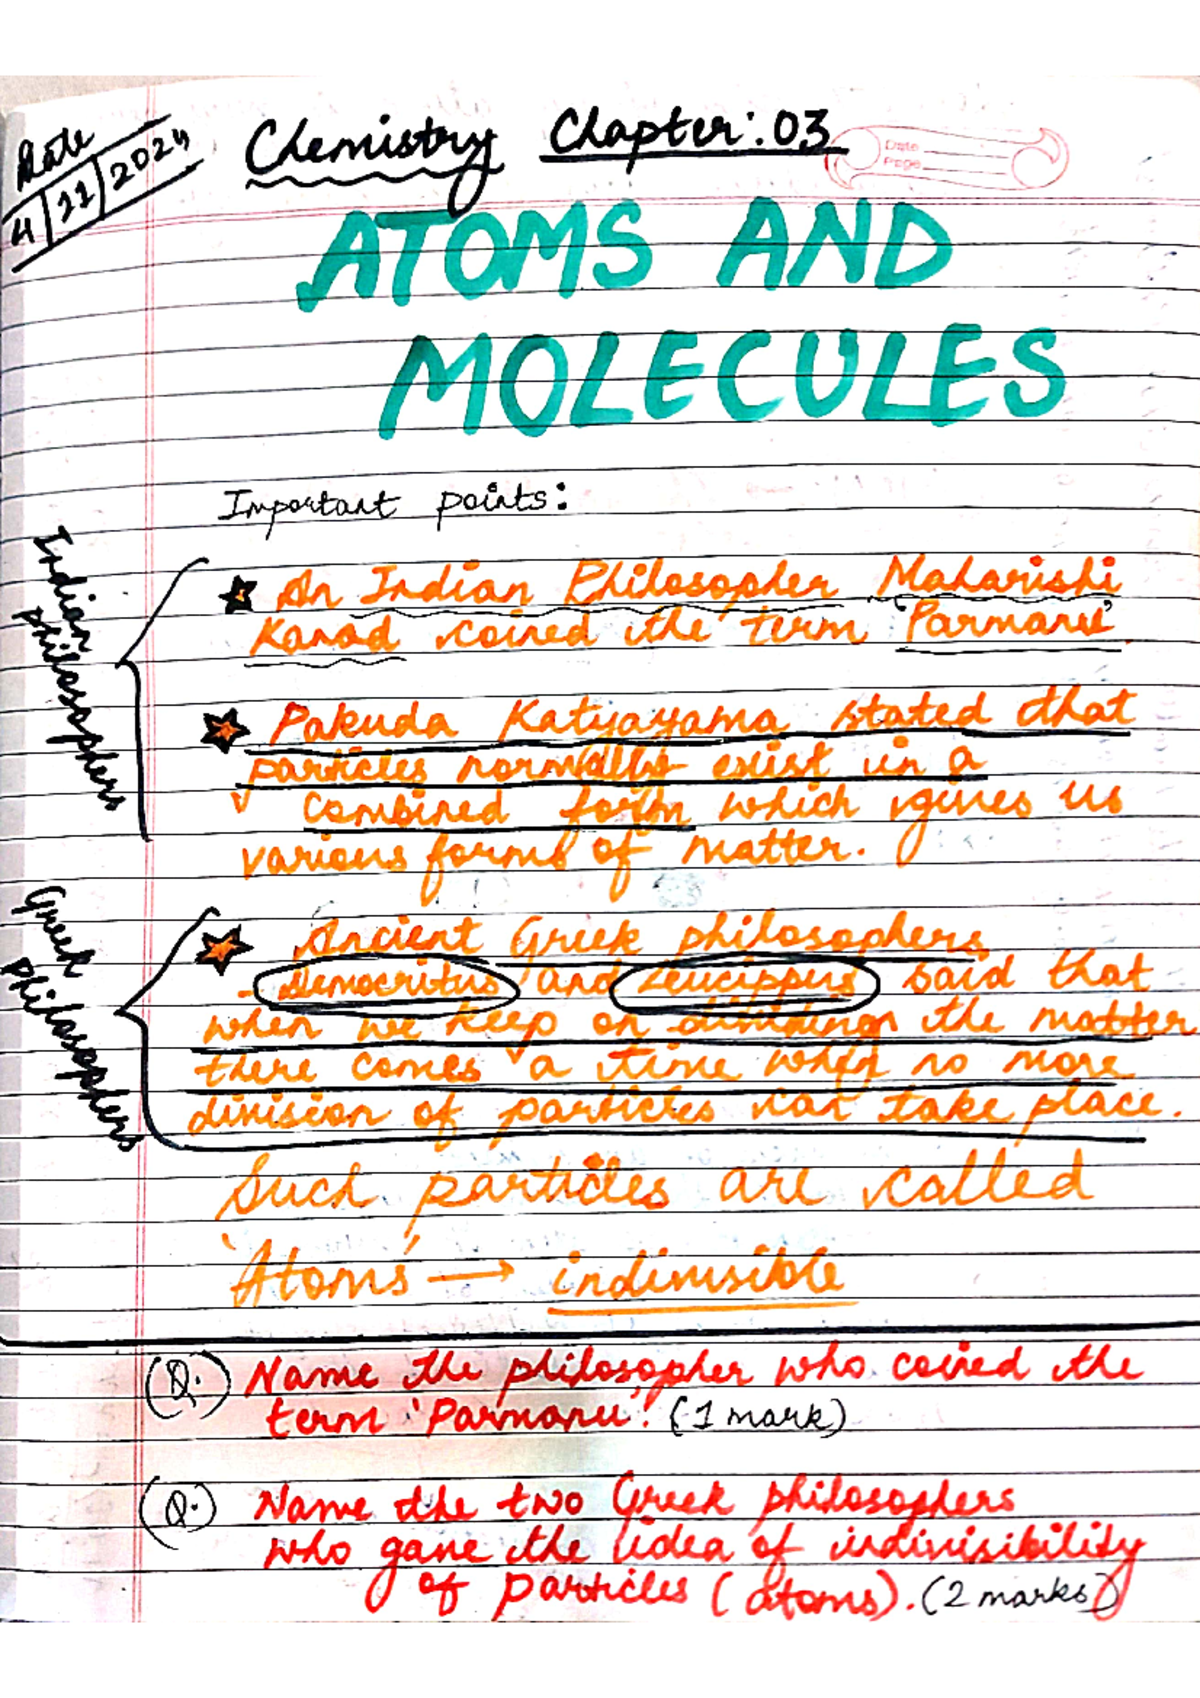 Date
4/11/2024
Chemistry Chapter:.03
Date
Page
ATOMS AND
MOLECULES
Important points:
Indian
philosophers
An Indian Philosopher Maharishi
Kanad coined the term 'Parmanu'.
Pakuda Katyayama stated that
particles normally exist in a
combined form which gives us
various forms of matter.
Greek
philosophers
Ancient Greek philosophers
Democritus and Leucippus said that
when we keep on dividing the matter
there comes a time when no more
division of particles can take place.
Such particles are called
'Atoms' → indivisible
(Q.) Name the philosopher who coined the
term 'Parmanu'. (1 mark)
(Q.) Name the two Greek philosophers
who gave the idea of indivisibility
of particles (atoms). (2 marks)